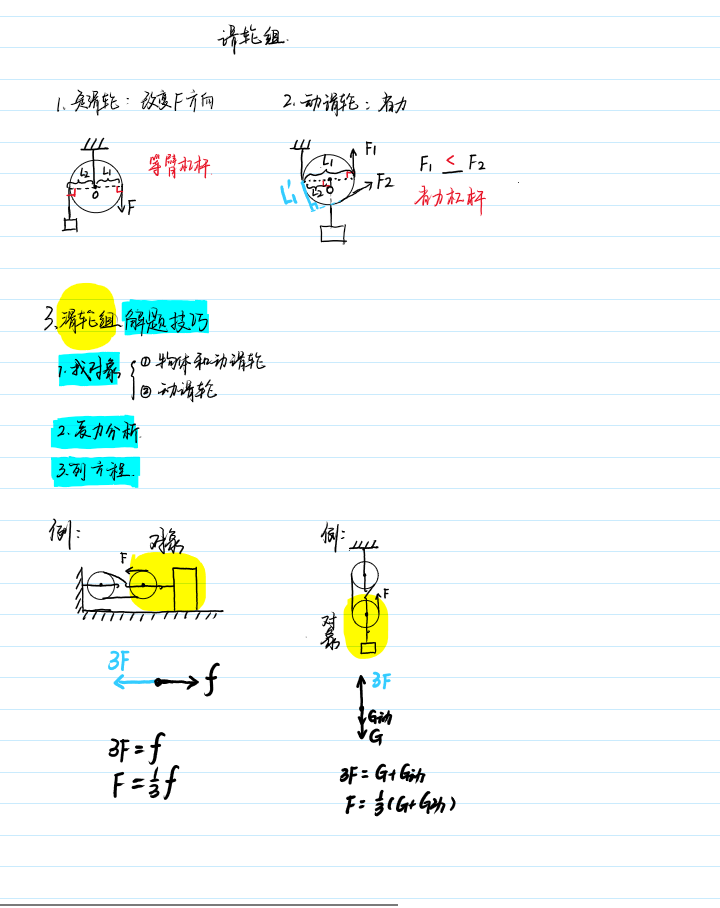 滑轮组.
1. 定滑轮：改变F方向
2. 动滑轮：省力
L2 L1
O
F
等臂杠杆.
L1
L2 O
L1'
F1
F2
F1 < F2
省力杠杆
3. 滑轮组 解题技巧
1. 找对象 { ① 物体和动滑轮
② 动滑轮
2. 受力分析.
3. 列方程.
例：
对象
F
3F
f
3F = f
F = 1/3 f
例：
F
对象
3F
G动
G
3F = G + G动
F = 1/3 (G + G动)